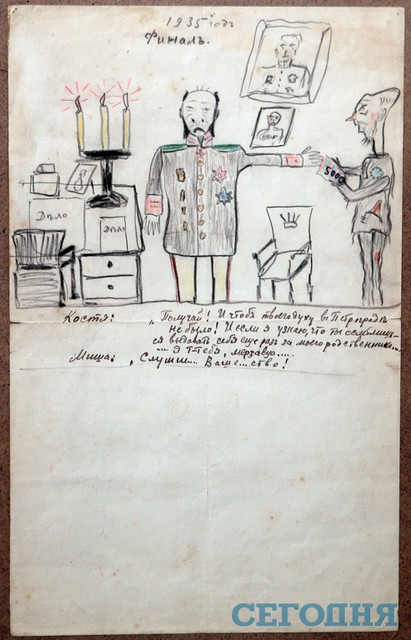 1935 годъ
Финалъ.
5000
Дѣло
Дѣло
Костя: „Получай! И чтобъ твоего духу въ Петроградѣ
не было! И если я узнаю, что ты осмѣлишь-
ся выдавать себя еще разъ за моего родственника...
... я т-тебя, мерзавца.....
Миша: „Слуш... Ваше...ство!
СЕГОДНЯ